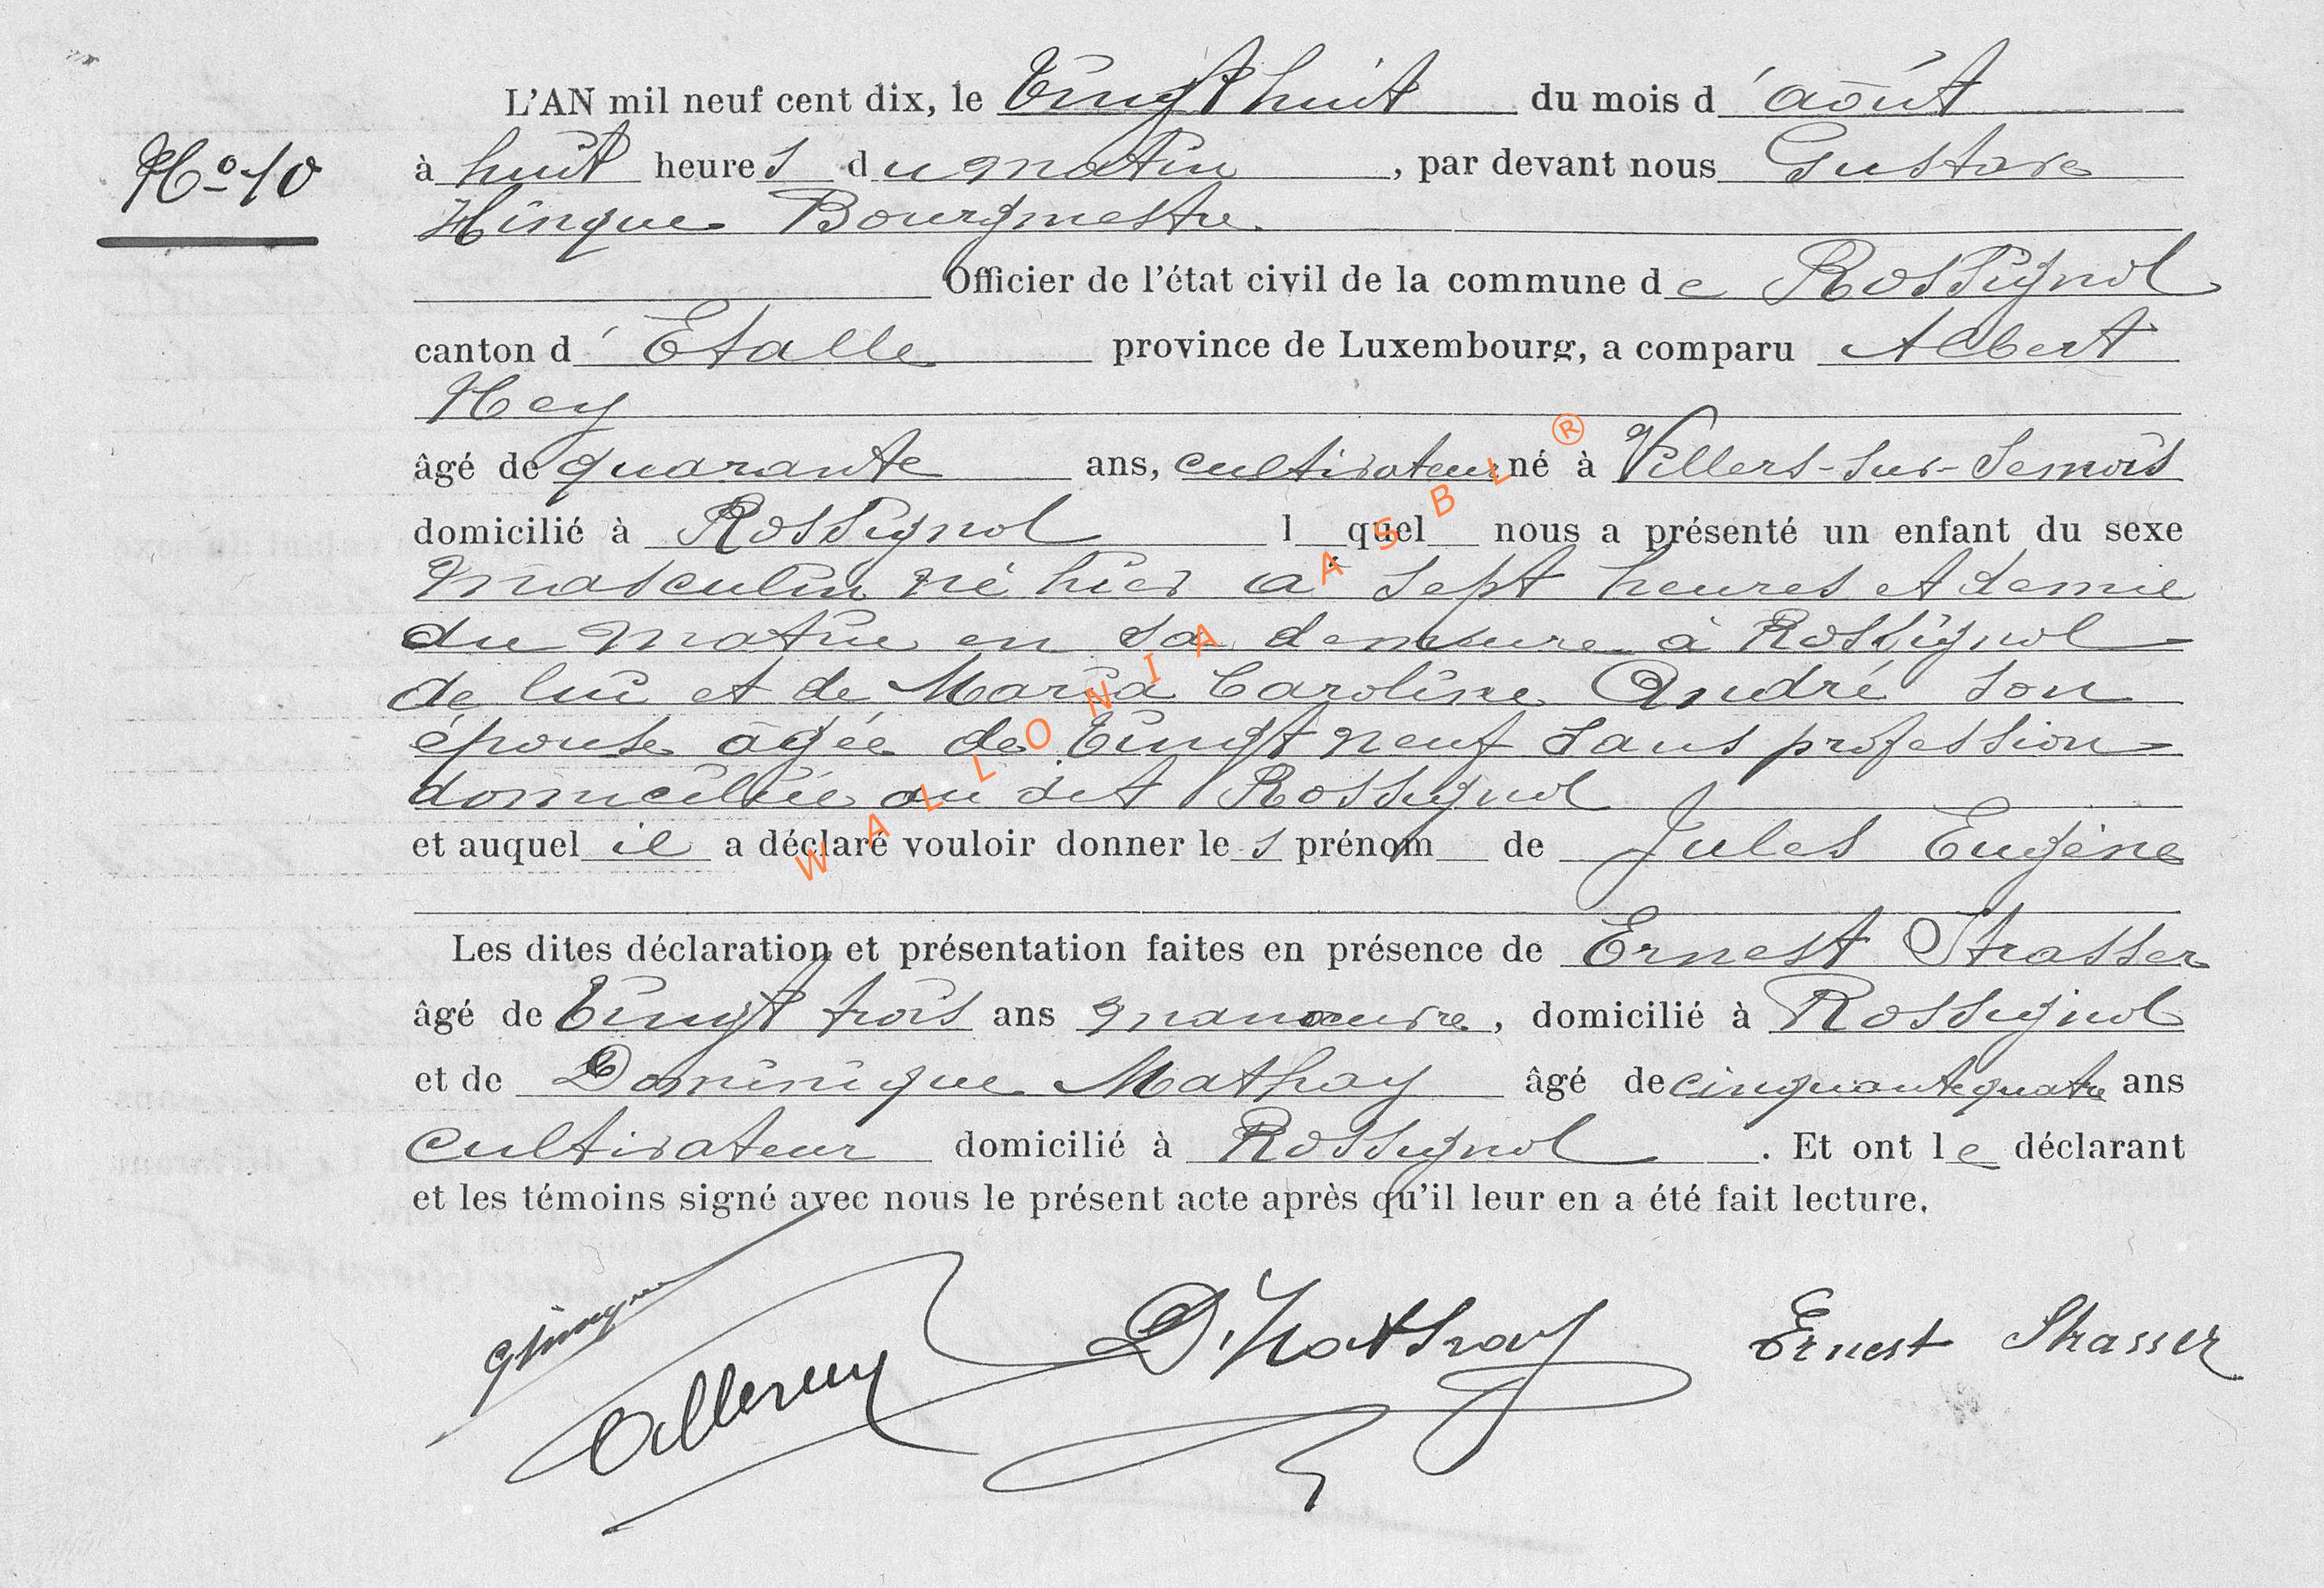 L'AN mil neuf cent dix, le Vingt huit du mois d'août
No 10
à huit heures du matin, par devant nous Gustave
Hinque Bourgmestre
Officier de l'état civil de la commune de Rossignol
canton d'Etalle province de Luxembourg, a comparu Albert
Ney
âgé de quarante ans, cultivateur né à Villers-sur-Semois
domicilié à Rossignol l quel nous a présenté un enfant du sexe
masculin né hier à sept heures et demie
du matin en sa demeure à Rossignol
de lui et de Maria Caroline André son
épouse agée de Vingt neuf sans profession
domiciliée au dit Rossignol
et auquel il a déclaré vouloir donner les prénom de Jules Eugène
Les dites déclaration et présentation faites en présence de Ernest Strasser
âgé de Vingt trois ans manoeuvre, domicilié à Rossignol
et de Dominique Mathay âgé de cinquante quatre ans
cultivateur domicilié à Rossignol. Et ont le déclarant
et les témoins signé avec nous le présent acte après qu'il leur en a été fait lecture.
GHinque
D. Mathay Ernest Strasser
WALLONIA ASBL ®